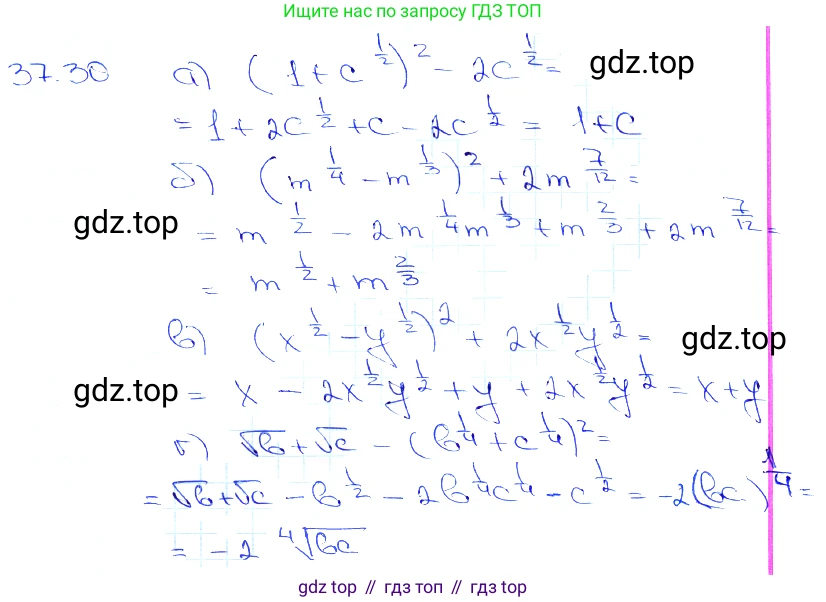 Ищите нас по запросу ГДЗ ТОП
37.30 а) (1+c^{1/2})^2 - 2c^{1/2} = gdz.top
= 1 + 2c^{1/2} + c - 2c^{1/2} = 1+c
б) (m^{1/4} - m^{1/3})^2 + 2m^{7/12} =
gdz.top = m^{1/2} - 2m^{1/4}m^{1/3} + m^{2/3} + 2m^{7/12} =
= m^{1/2} + m^{2/3}
в) (x^{1/2} - y^{1/2})^2 + 2x^{1/2}y^{1/2} = gdz.top
gdz.top = x - 2x^{1/2}y^{1/2} + y + 2x^{1/2}y^{1/2} = x+y
г) √b + √c - (b^{1/4} + c^{1/4})^2 =
= √b + √c - b^{1/2} - 2b^{1/4}c^{1/4} - c^{1/2} = -2(bc)^{1/4} =
= -2 ∜bc
gdz.top // гдз топ // gdz.top